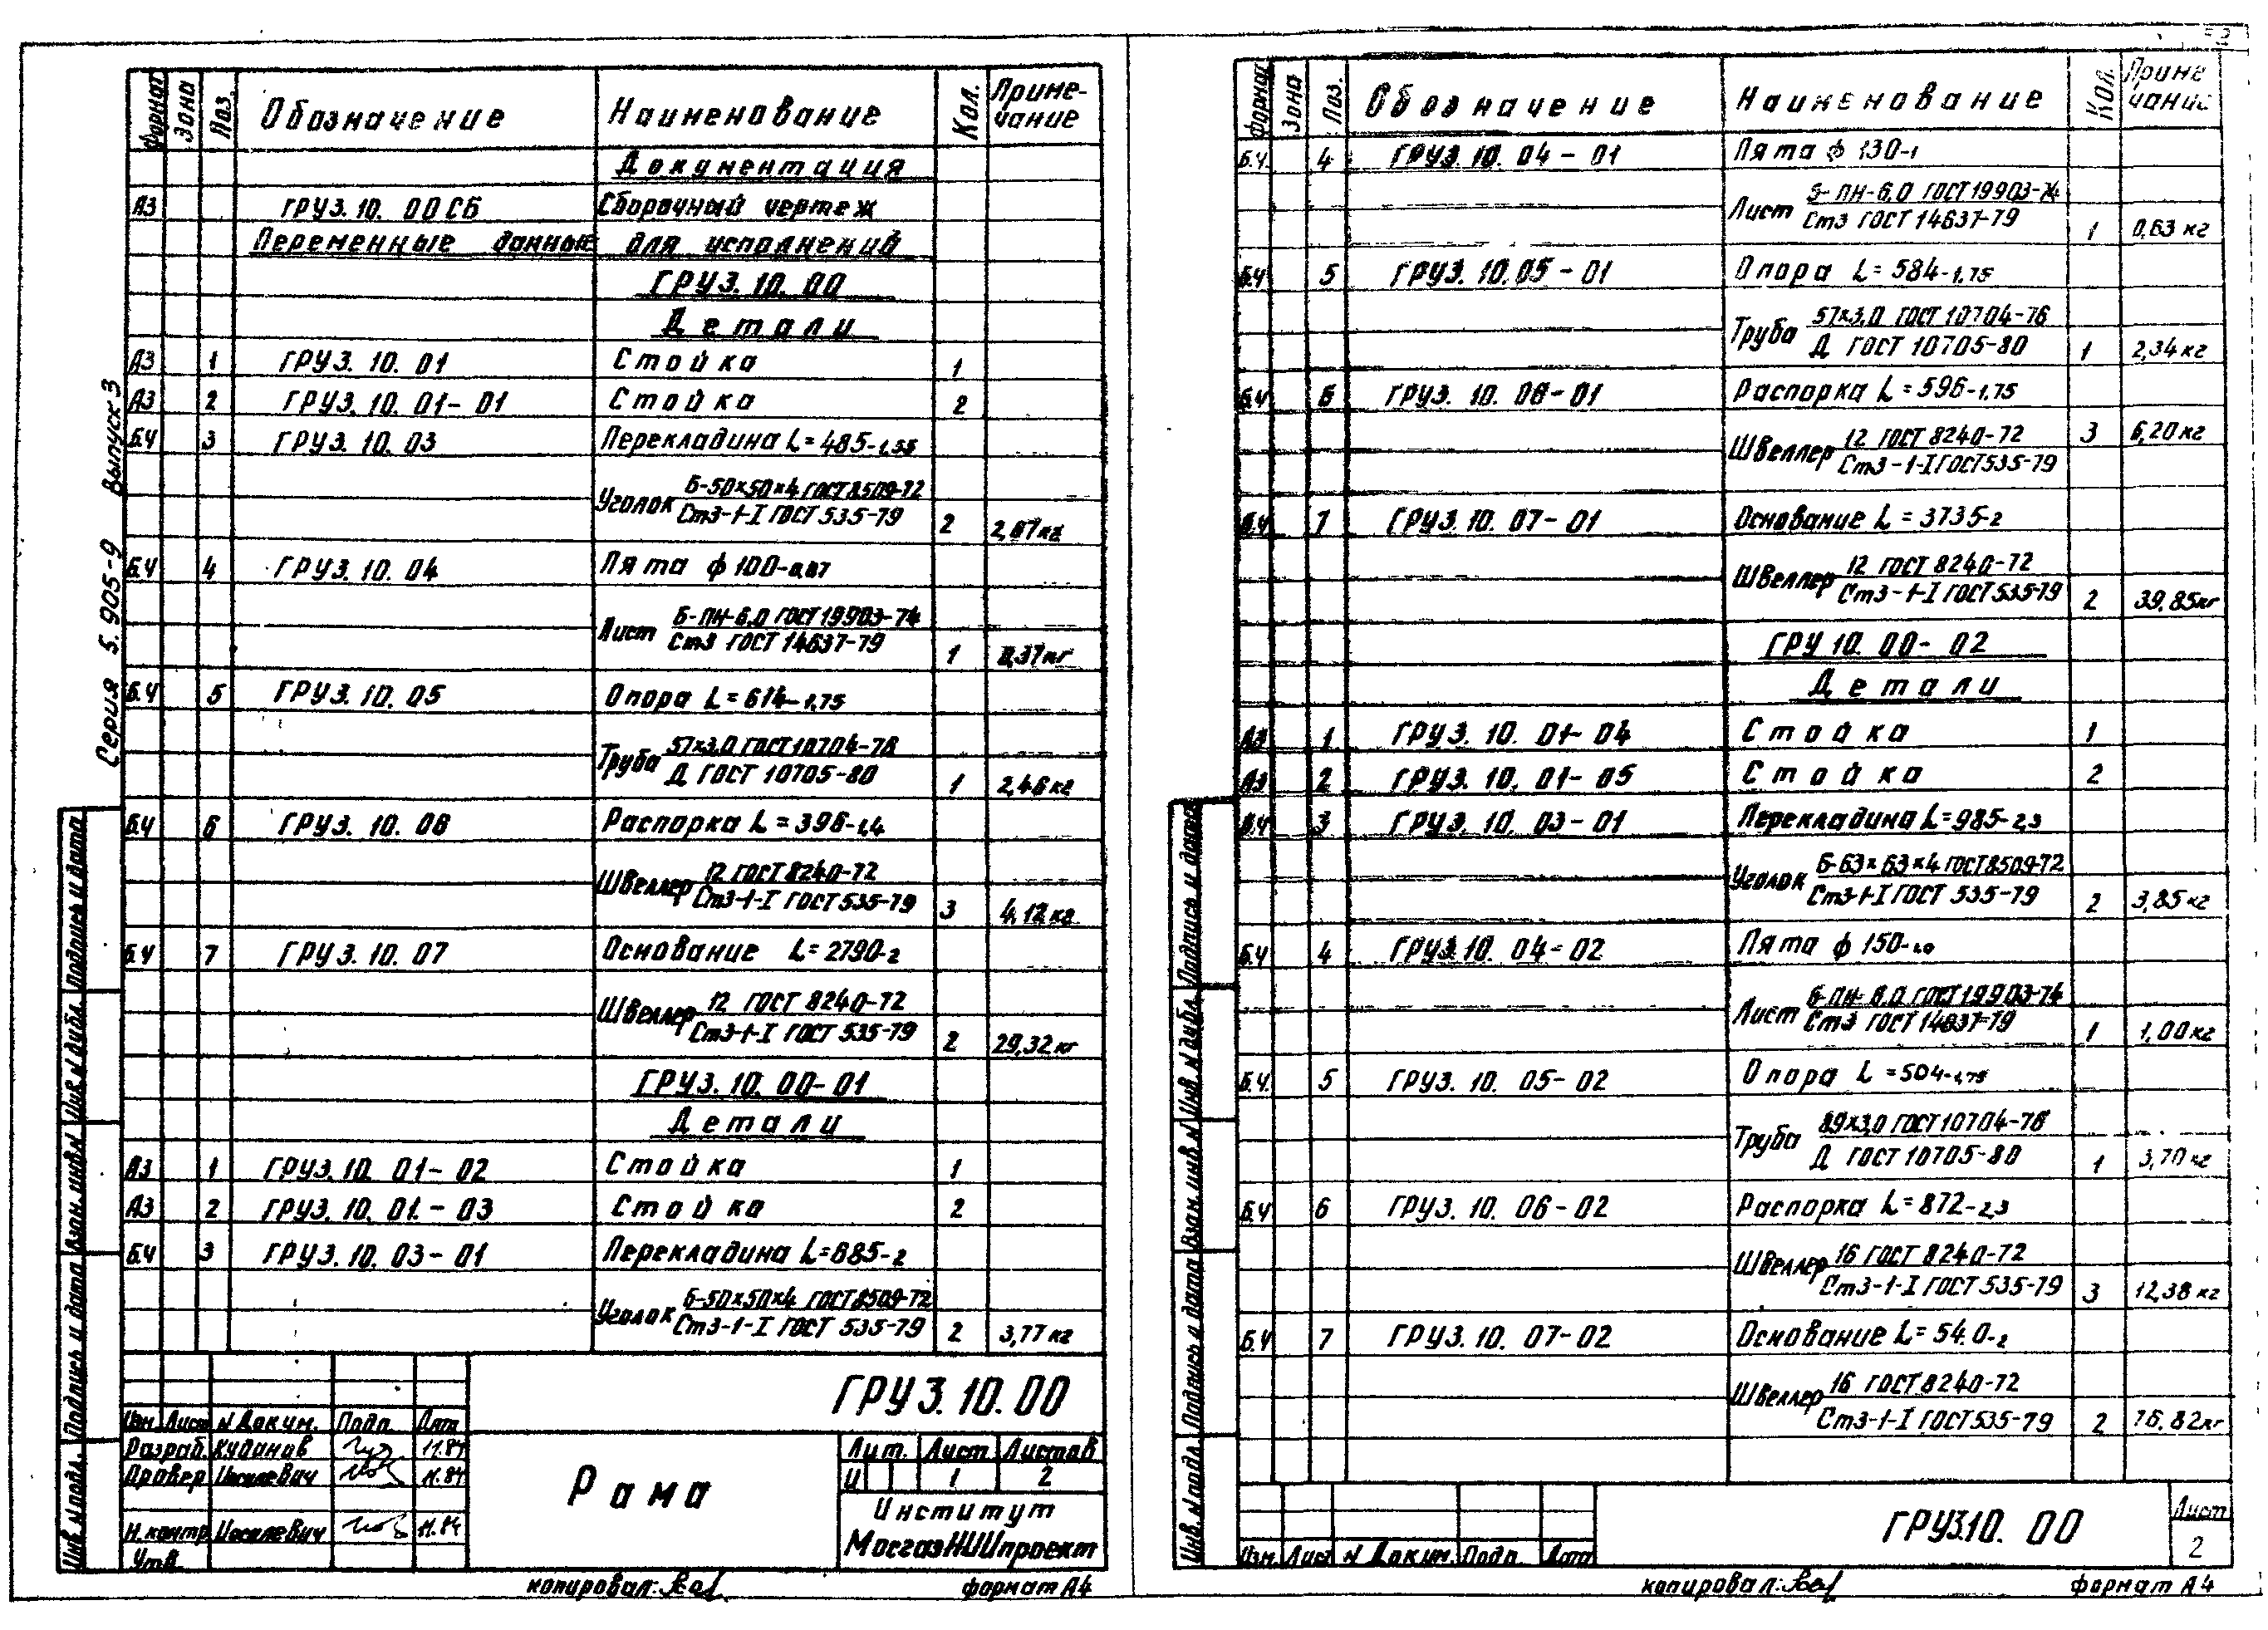 Серия 5.905-9 Выпуск 3
Формат Зона Поз. Обозначение Наименование Кол. Приме-
чание
Документация
А3 ГРУ 3.10. 00 СБ Сборочный чертеж
Переменные данные для исполнений
ГРУ 3.10. 00
Детали
А3 1 ГРУ 3.10. 01 Стойка 1
А3 2 ГРУ 3.10. 01-01 Стойка 2
Б.Ч 3 ГРУ 3.10. 03 Перекладина L=485-1,55
Уголок Б-50×50×4 ГОСТ 8509-72
Ст3-1-I ГОСТ 535-79 2 2,67кг
Б.Ч 4 ГРУ 3.10. 04 Пята ф 100-0,87
Лист Б-ПН-6.0 ГОСТ 19903-74
Ст3 ГОСТ 14637-79 1 0,37кг
Б.Ч 5 ГРУ 3.10. 05 Опора L=614-1,75
Труба 57×3.0 ГОСТ 10704-76
Д ГОСТ 10705-80 1 2,46кг
Б.Ч 6 ГРУ 3.10. 06 Распорка L=396-1,4
Швеллер 12 ГОСТ 8240-72
Ст3-1-I ГОСТ 535-79 3 4,12кг
Б.Ч 7 ГРУ 3.10. 07 Основание L=2790-2
Швеллер 12 ГОСТ 8240-72
Ст3-1-I ГОСТ 535-79 2 29,32кг
ГРУ 3.10. 00-01
Детали
А3 1 ГРУ 3.10. 01-02 Стойка 1
А3 2 ГРУ 3.10. 01.-03 Стойка 2
Б.Ч 3 ГРУ 3.10. 03-01 Перекладина L=685-2
Уголок Б-50×50×4 ГОСТ 8509-72
Ст3-1-I ГОСТ 535-79 2 3,77кг
Инв. N подл. Подпись и дата Взам. инв. N Инв. N дубл. Подпись и дата
ГРУ 3.10.00
Изм. Лист N Докум. Подп. Дата
Разраб. 11.84
Провер. Иоселевич 11.84
Н.контр. Иоселевич 11.84
Утв.
Рама
Лит. Лист Листов
И 1 2
Институт
МосгазНИИпроект
копировал: формат А4
Формат Зона Поз. Обозначение Наименование Кол. Приме
чание
Б.Ч 4 ГРУ 3.10. 04-01 Пята ф 130-1
Лист Б-ПН-6.0 ГОСТ 19903-74
Ст3 ГОСТ 14637-79 1 0,63 кг
Б.Ч 5 ГРУ 3.10.05-01 Опора L=584-1,75
Труба 57×3,0 ГОСТ 10704-76
Д ГОСТ 10705-80 1 2,34кг
Б.Ч 6 ГРУ 3.10. 06-01 Распорка L=596-1,75
Швеллер 12 ГОСТ 8240-72 3 6,20кг
Ст3-1-I ГОСТ 535-79
Б.Ч 7 ГРУ 3.10. 07-01 Основание L=3735-2
Швеллер 12 ГОСТ 8240-72
Ст3-1-I ГОСТ 535-79 2 39,85кг
ГРУ 10. 00-02
Детали
А3 1 ГРУ 3.10. 01-04 Стойка 1
А3 2 ГРУ 3.10. 01-05 Стойка 2
Б.Ч 3 ГРУ 3.10. 03-01 Перекладина L=985-2,3
Уголок Б-63×63×4 ГОСТ 8509-72
Ст3-1-I ГОСТ 535-79 2 3,85кг
Б.Ч 4 ГРУ 3.10. 04-02 Пята ф 150-1.0
Лист Б-ПН-6.0 ГОСТ 19903-74
Ст3 ГОСТ 14637-79 1 1,00кг
Б.Ч. 5 ГРУ 3.10. 05-02 Опора L=504-1,75
Труба 89×3,0 ГОСТ 10704-76
Д ГОСТ 10705-80 1 3,70кг
Б.Ч 6 ГРУ 3.10. 06-02 Распорка L=872-2,3
Швеллер 16 ГОСТ 8240-72
Ст3-1-I ГОСТ 535-79 3 12,38кг
Б.Ч 7 ГРУ 3.10. 07-02 Основание L=54.0-2
Швеллер 16 ГОСТ 8240-72
Ст3-1-I ГОСТ 535-79 2 76,82кг
Инв. N подл. Подпись и дата Взам. инв. N Инв. N дубл. Подпись и дата
Изм. Лист N Докум. Подп. Дата
ГРУ 3.10. 00
Лист
2
копировал: формат А4